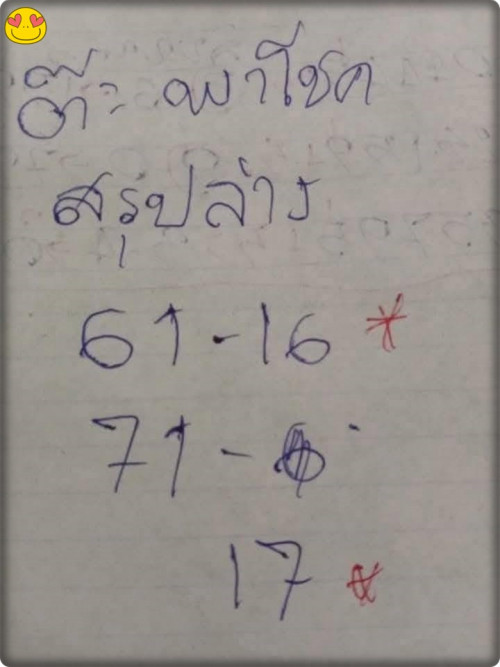 ต๊ะ พาโชค
สรุปล่าง
61-16 *
71-
17 *